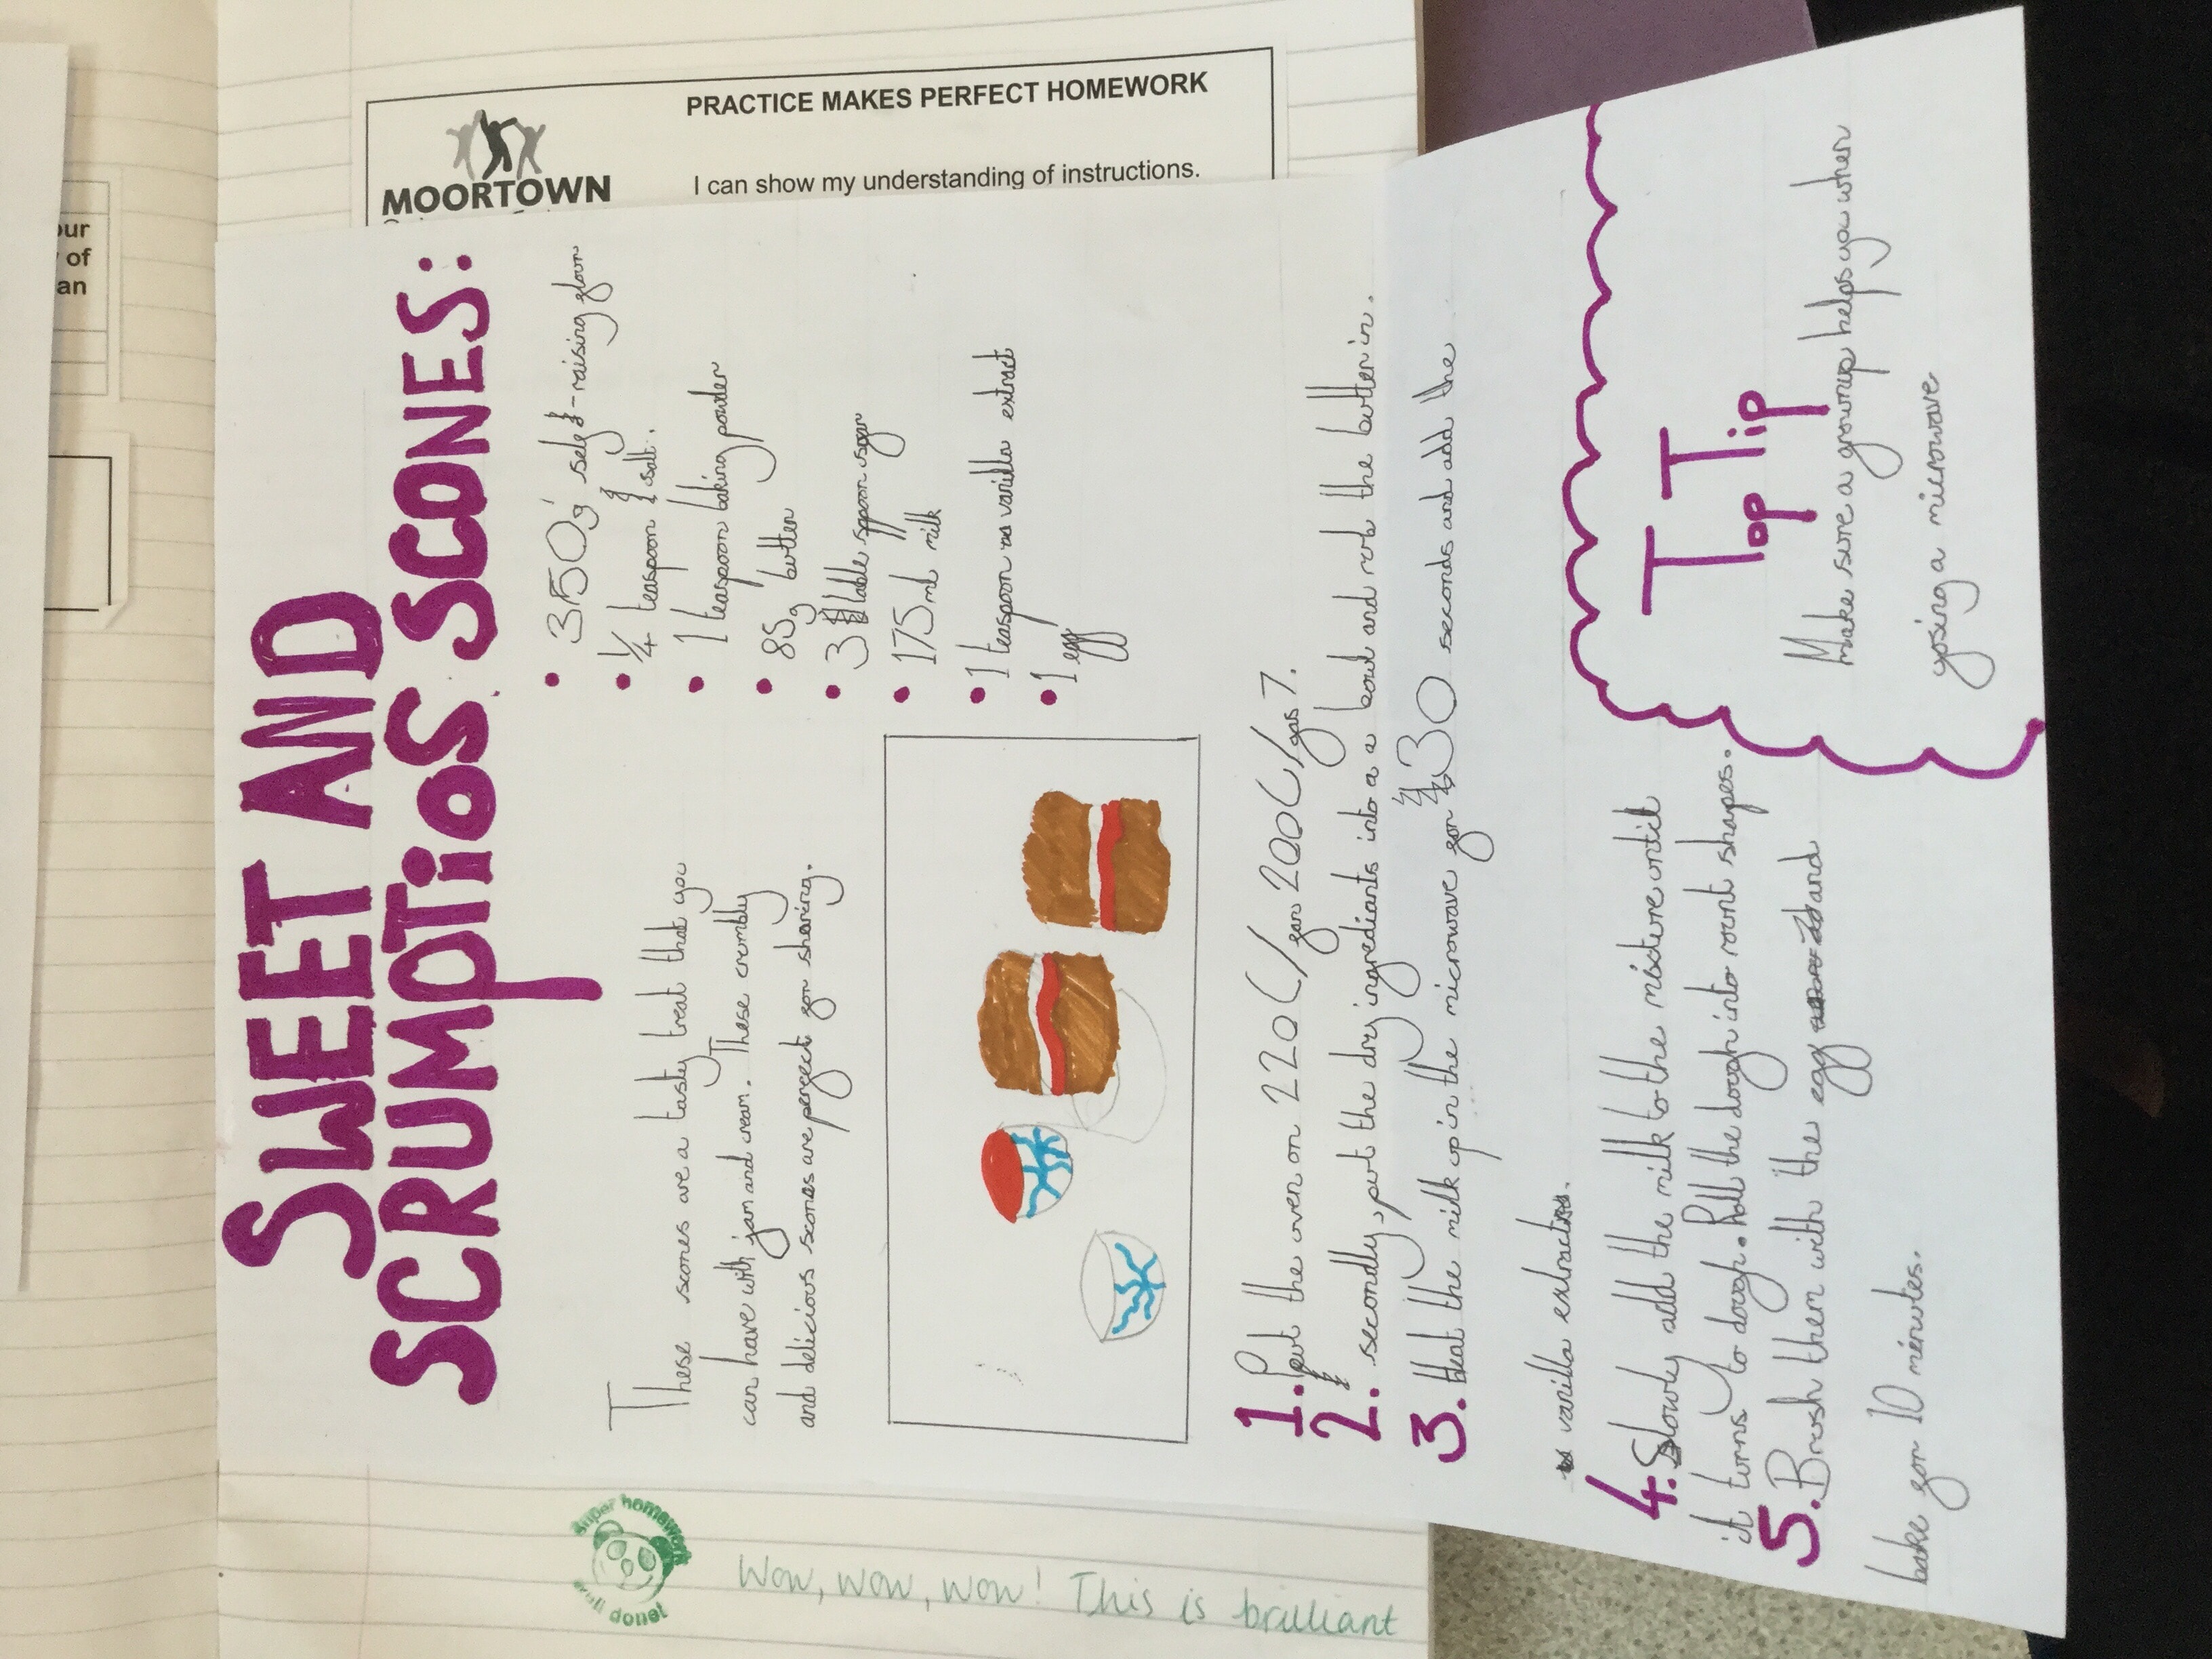 our
of
an
MOORTOWN
PRACTICE MAKES PERFECT HOMEWORK
I can show my understanding of instructions.
SWEET AND
SCRUMPTiOS SCONES:
These scones are a tasty treat that you
can have with jam and cream. These crumbly
and delicious scones are perfect for sharing.
• 350g self-raising flour
• 1/4 teaspoon of salt.
• 1 teaspoon baking powder
• 85g butter
• 3 table sppoon sugar
• 175ml milk
• 1 teaspoon varilla extract
• 1 egg
1. Put the oven on 220C/fan 200C/gas 7.
2. secondly, put the dry ingrediants into a a bowl and rub the butter in.
3. Heat the milk up in the microwave for 30 seconds and add the
varilla extract.
4. Slowly add the milk to the mixture until
it turns to dough. Roll the dough into rount shapes.
5. Brush them with the egg and
bake for 10 minutes.
Top Tip
Make sure a grownup helps you when
using a microwave
super homework
well done!
Wow, wow, wow! This is brilliant